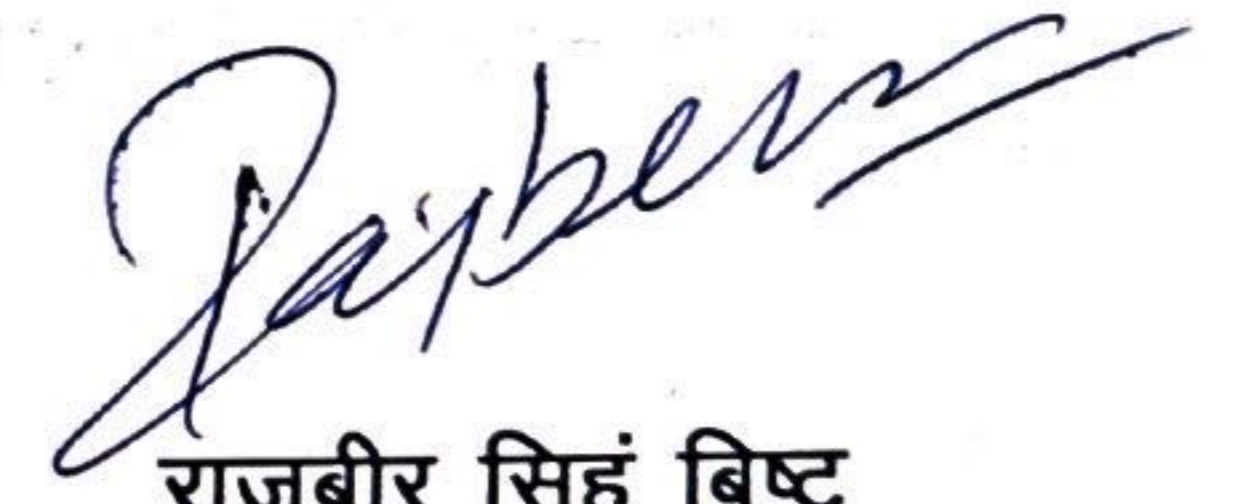 Rajbeer
राजबीर सिहं बिष्ट